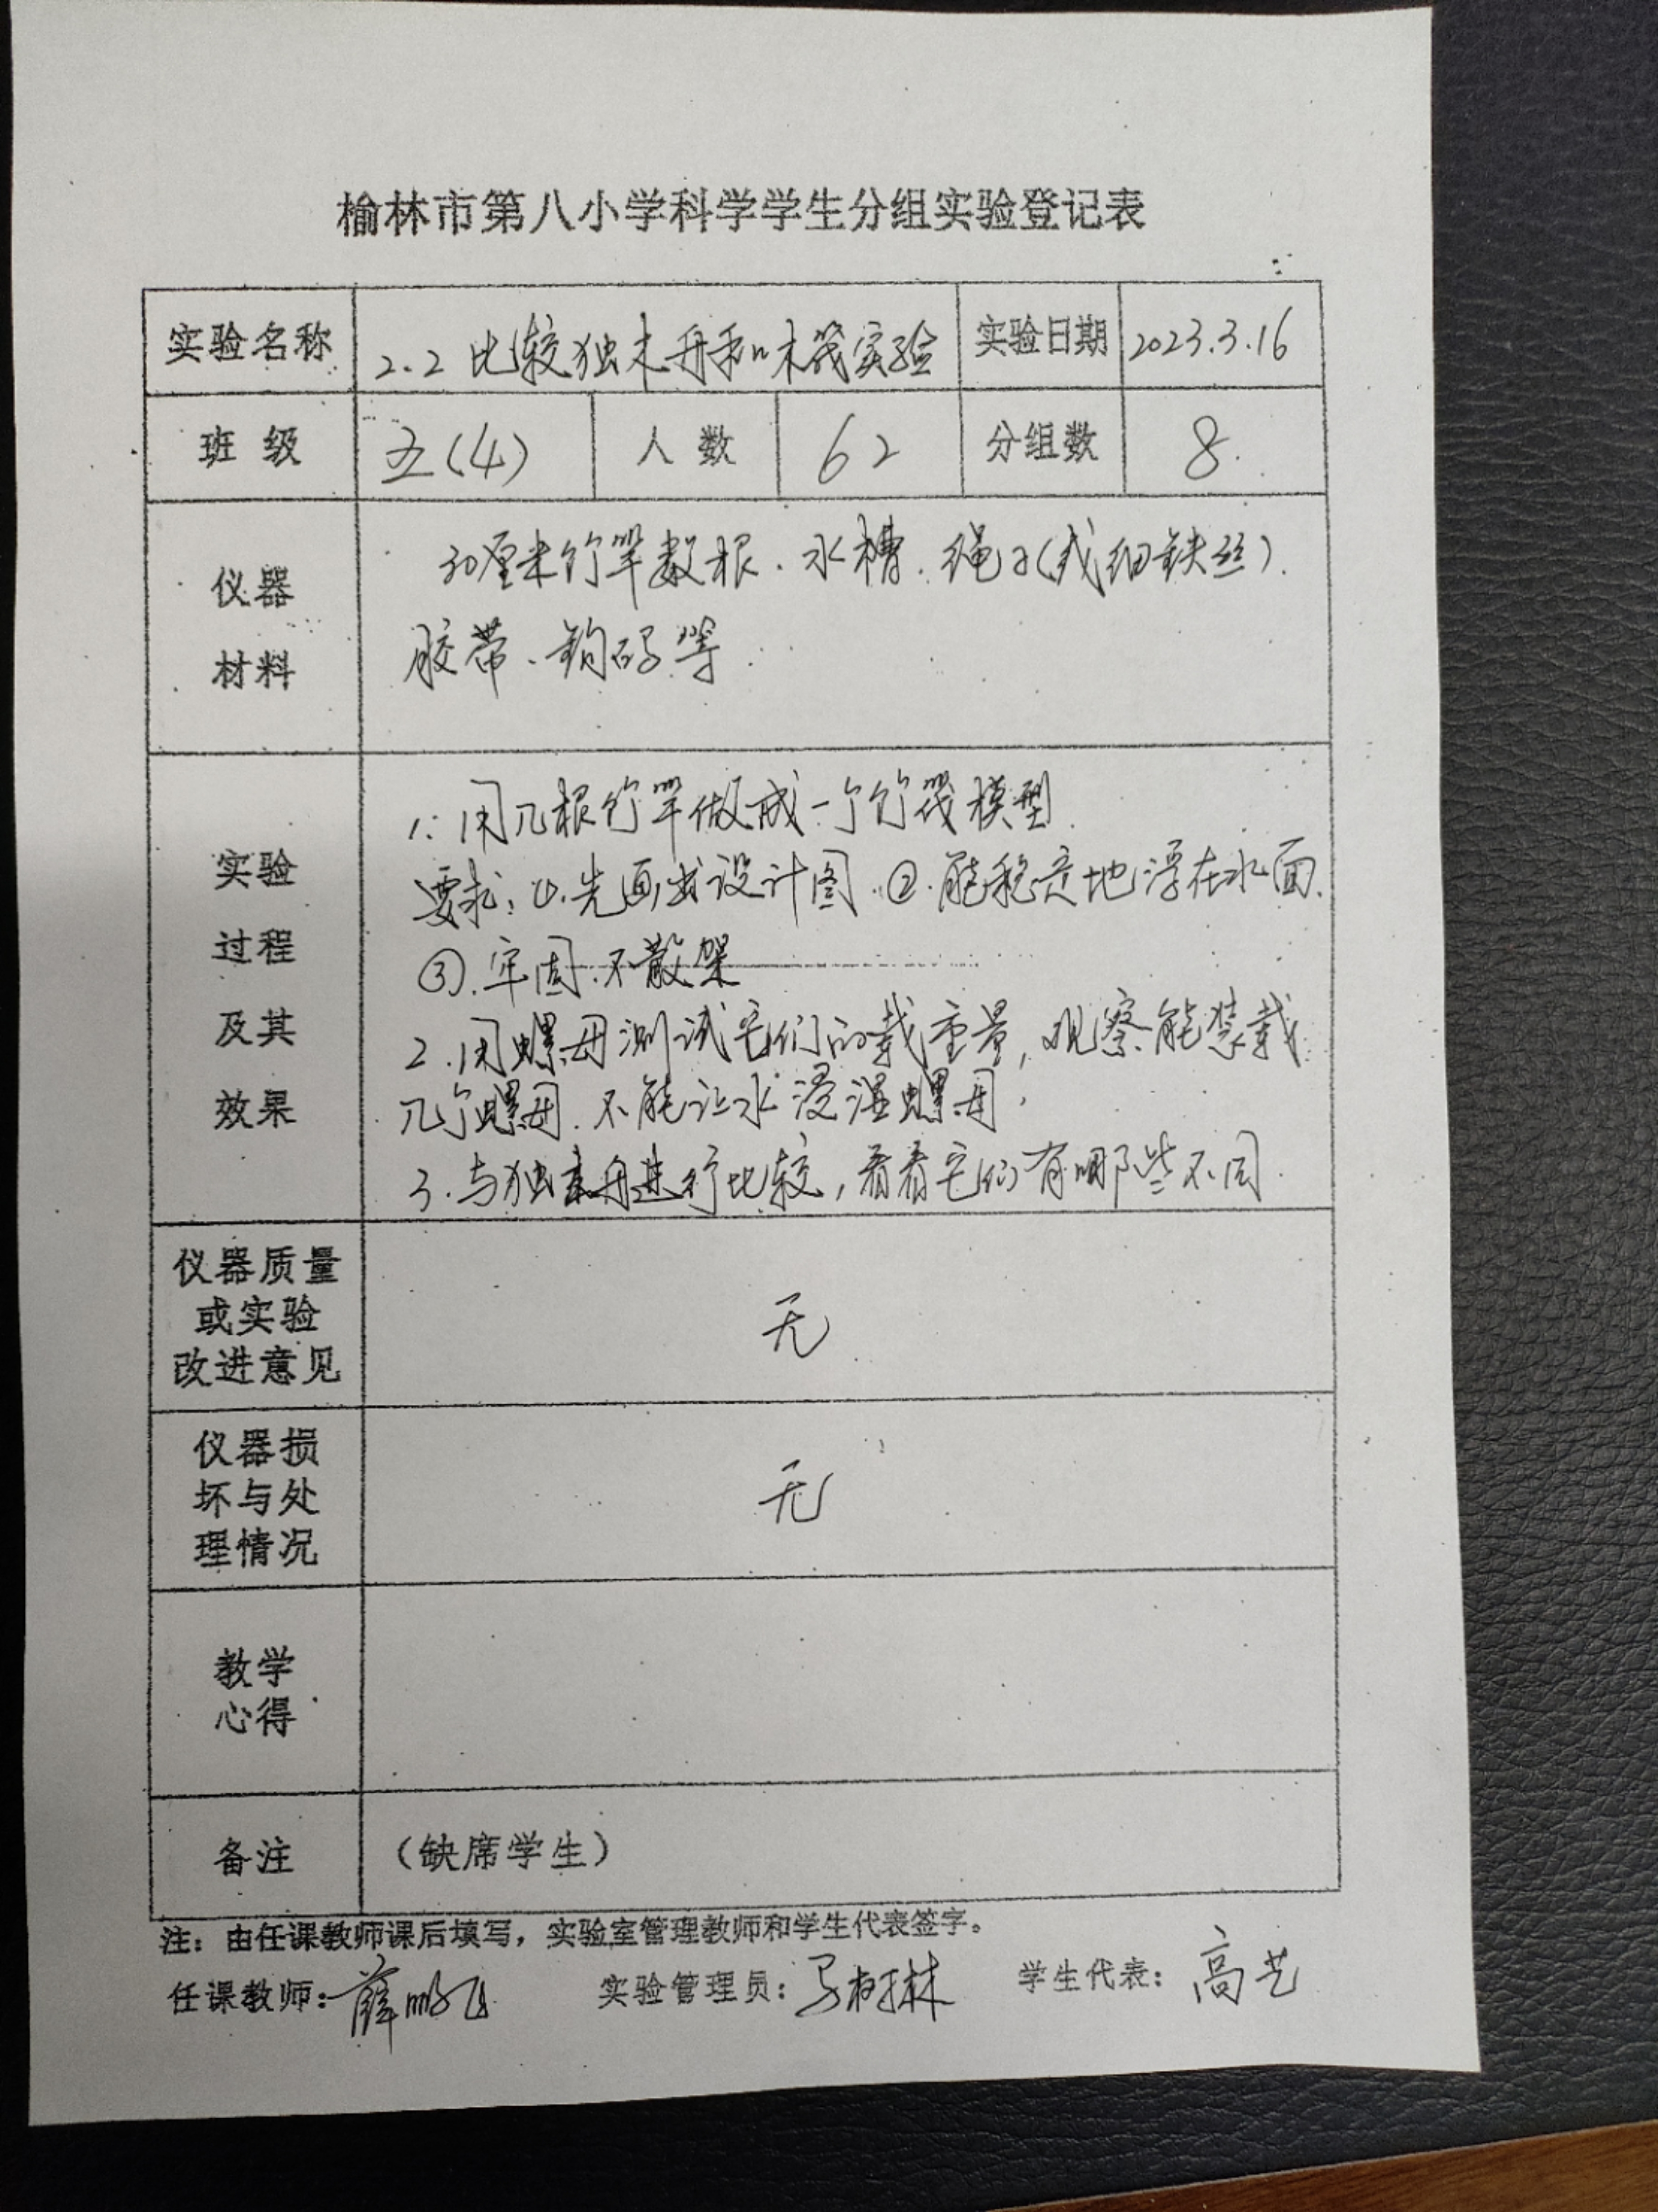 榆林市第八小学科学学生分组实验登记表
实验名称 2.2 比较独木舟和木筏实验 实验日期 2023.3.16
班 级 五(4) 人 数 62 分组数 8
仪器
材料
30厘米竹竿数根、水槽、绳子(或细铁丝)、
胶带、钩码等
实验
过程
及其
效果
1. 用几根竹竿做成一个竹筏模型
要求:①.先画出设计图 ②.能稳定地浮在水面.
③.牢固.不散架
2.用螺母测试它们的载重量,观察能装载
几个螺母.不能让水浸湿螺母.
3.与独木舟进行比较,看看它们有哪些不同.
仪器质量
或实验
改进意见
无
仪器损
坏与处
理情况
无
教学
心得
备注 (缺席学生)
注:由任课教师课后填写,实验室管理教师和学生代表签字。
任课教师:薛 实验管理员:马林 学生代表:高艺